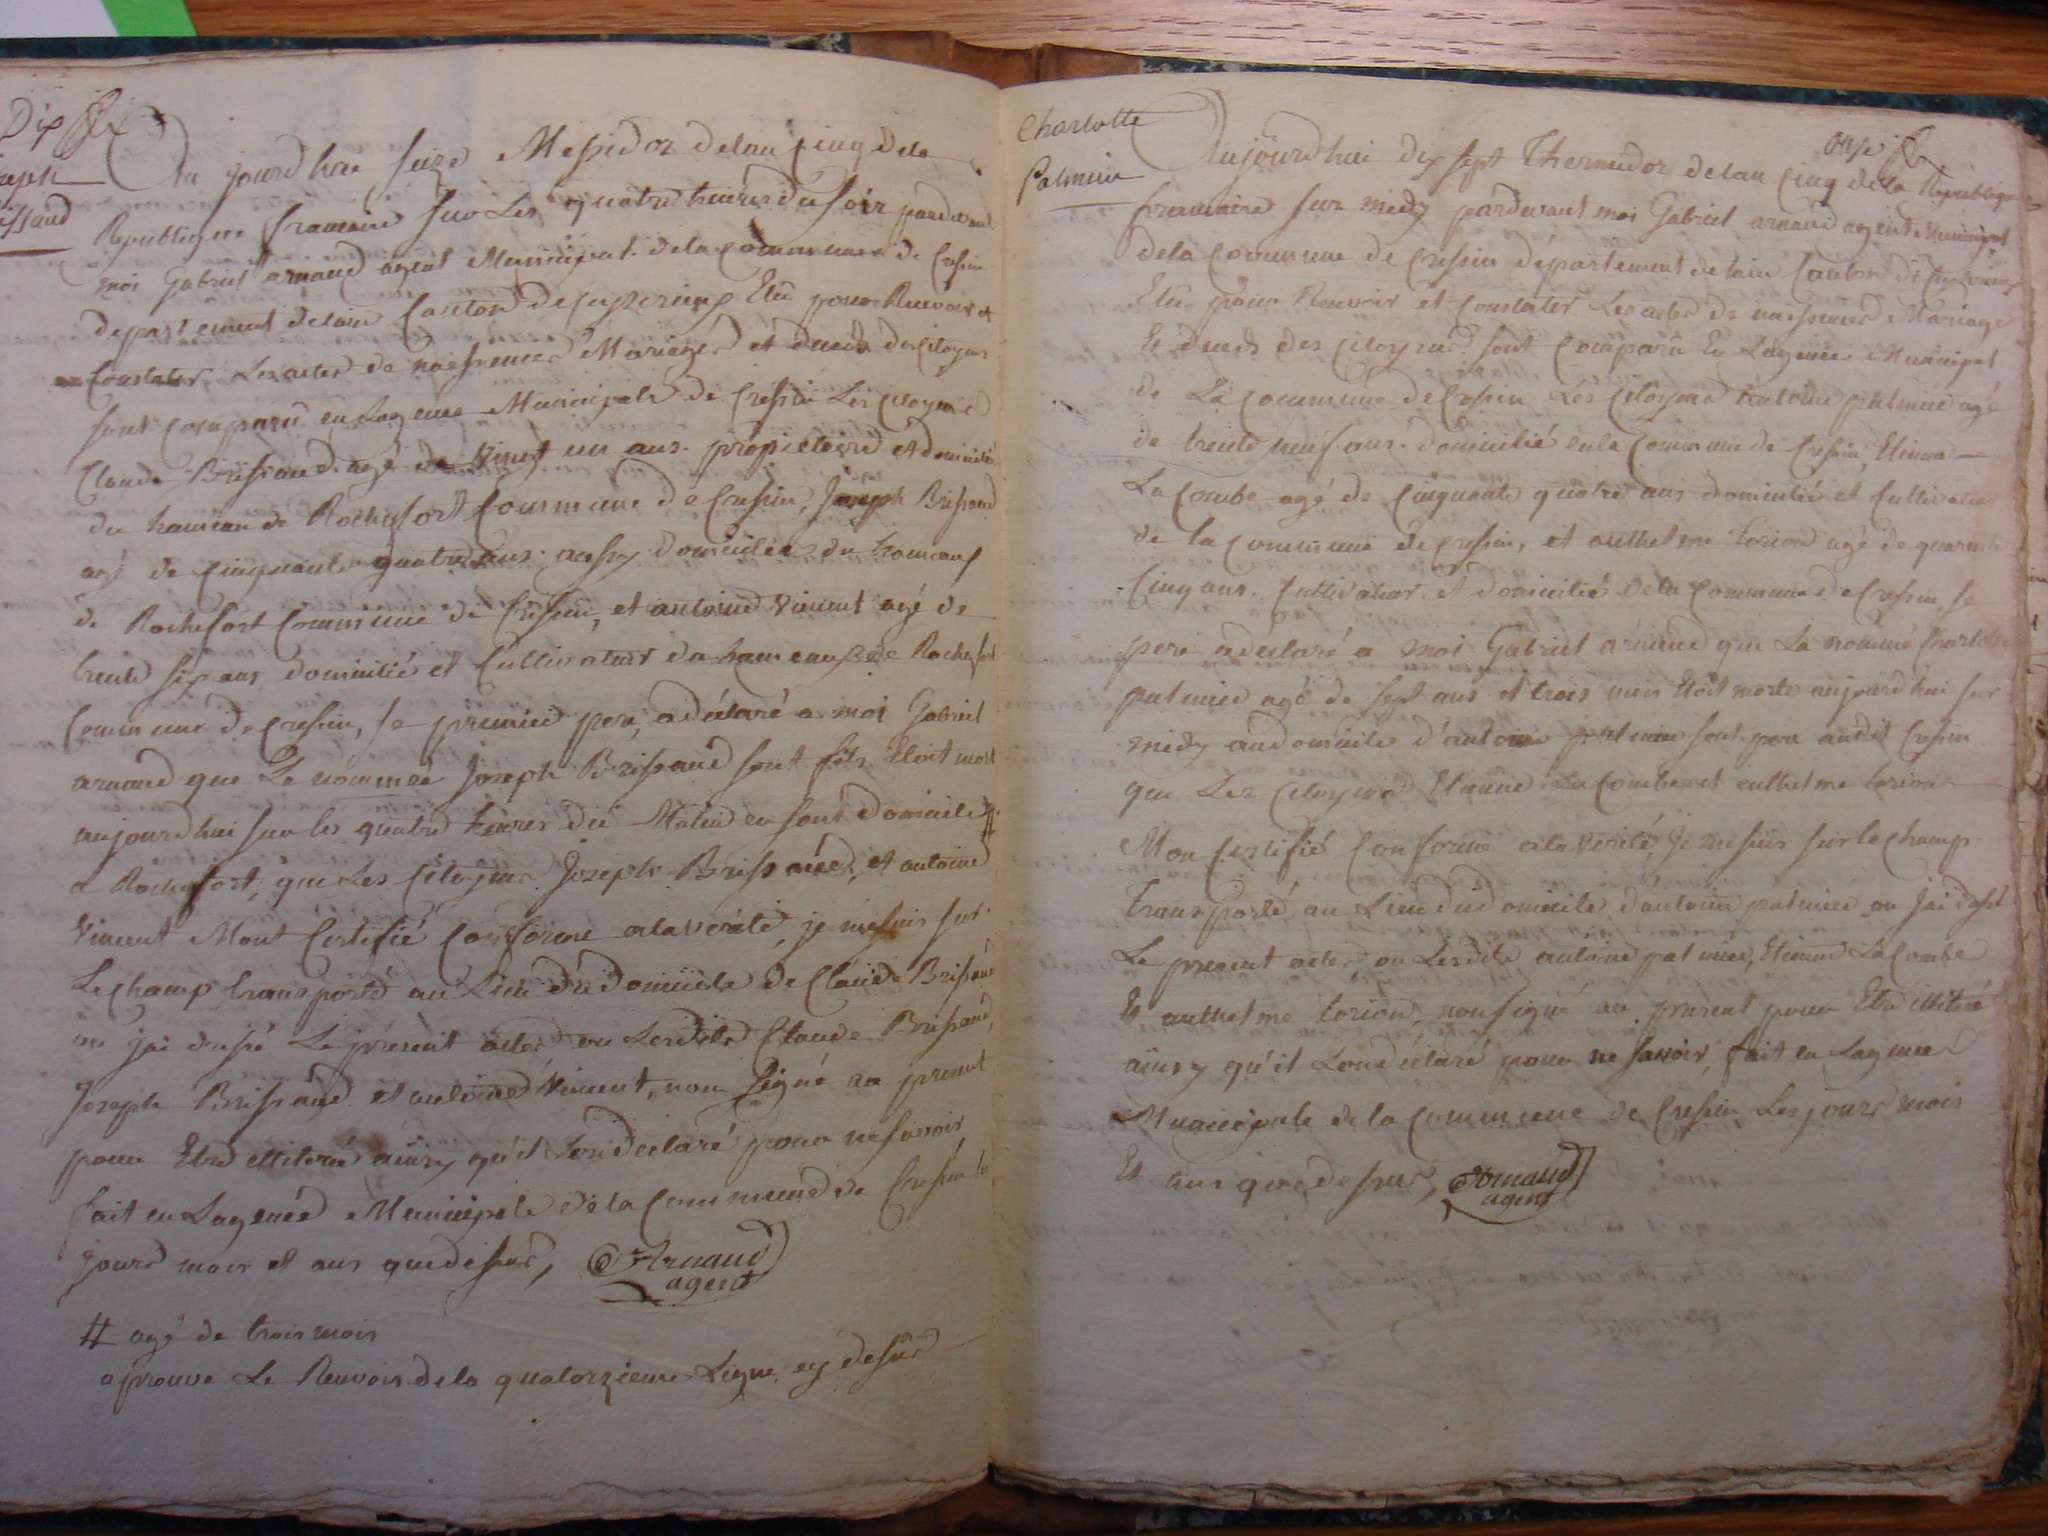 Dix
Joseph
Brissaud
Au jourdhui seize Messidor de lan Cinq de la
Republique francaise sur Les quatre heures du soir pardevant
moi Gabriel arnaud agent Municipal de la commune de Cressin
departement de lain Canton de Ceyzerieux Elu pour Recevoir et
Constater Les actes de naissences Mariages et deceds des Citoyens
sont comparu en Lagence Municipale de Cressin Les citoyens
Claude Brissaud agé de vingt un ans propietaire et domicilié
du hameau de Rochefort Commune de Cressin, Joseph Brissaud
agé de cinquante quatre ans aussy domicilié du hameau
de Rochefort Commune de Cressin, et antoine Vincent agé de
trente six ans domicilié et Cultivateur du hameau de Rochefort
Commune de Cressin, le premier pere, a déclaré a moi Gabriel
arnaud que Le nommée Joseph Brissaud sont fils Etoit mort
aujourdhui sur les quatre heures du Matin en sont domicile #
a Rochefort, que Les Citoyens Joseph Brissaud, et antoine
Vincent Mont Certifié Conforme a la verité, je me suis sur
Le champ transporté au Lieu du domicile de Claude Brissaud
ou jai dressé Le présent acte, ou Lesdits Claude Brissaud,
Joseph Brissaud et antoine Vincent, non signé au present
pour Etre illiteré ainsy qu'il lon declaré pour ne savoir,
fait en Lagence Municipale de la Commune de Cressin les
jours mois et ans que dessus, Arnaud
agent
# agé de trois mois
aprouve Le Renvois de la quatorzieme Ligne cy dessus
Charlotte
Palmier
onze
Aujourdhui dix sept Thermidor de lan Cinq de la Republique
francaise sur midy pardevant moi Gabriel arnaud agent Municipal
de la Commune de Cressin département de lain Canton de Ceyzerieux
Elu pour Recevoir et Constater Les actes de naissences Mariage
Et deceds des Citoyens sont Comparu En Lagence Municipal
de La Commune de Cressin Les Citoyens antoine palmier agé
de trente neuf ans domicilié en la Commune de Cressin, Etienne
La Combe agé de Cinquante quatre ans domicilié et Cultivateur
de la commune de Cressin, et anthelme Lorion agé de quarente
Cinq ans Cultivateur et domicilié de la Commune de Cressin, le
pere a déclaré a moi Gabriel arnaud que La nommé Charlotte
palmier agé de sept ans et trois mois Etoit morte aujourdhui sur
midy au domicile d'antoine palmier sont pere audit Cressin
que Les Citoyens Etienne La Combe et anthelme Lorion
Mon Certifié Conforme a la verité, je me suis sur le champ
Transporté au Lieu du domicile dantoine palmier ou jai dressé
Le present acte, ou Lesdits antoine palmier, Etienne La Combe
Et anthelme Lorion, non signé au present pour Etre illiteré
ainsy qu'il Lon déclaré pour ne savoir, fait en Lagence
Municipale de la Commune de Cressin Les jours mois
Et ans que dessus, Arnaud
agent